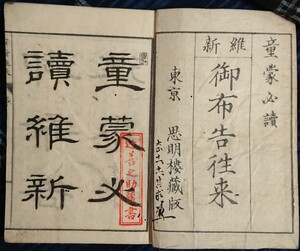 童蒙必讀
維新
御布告往来
東京　思明樓藏版
童蒙必
讀維新